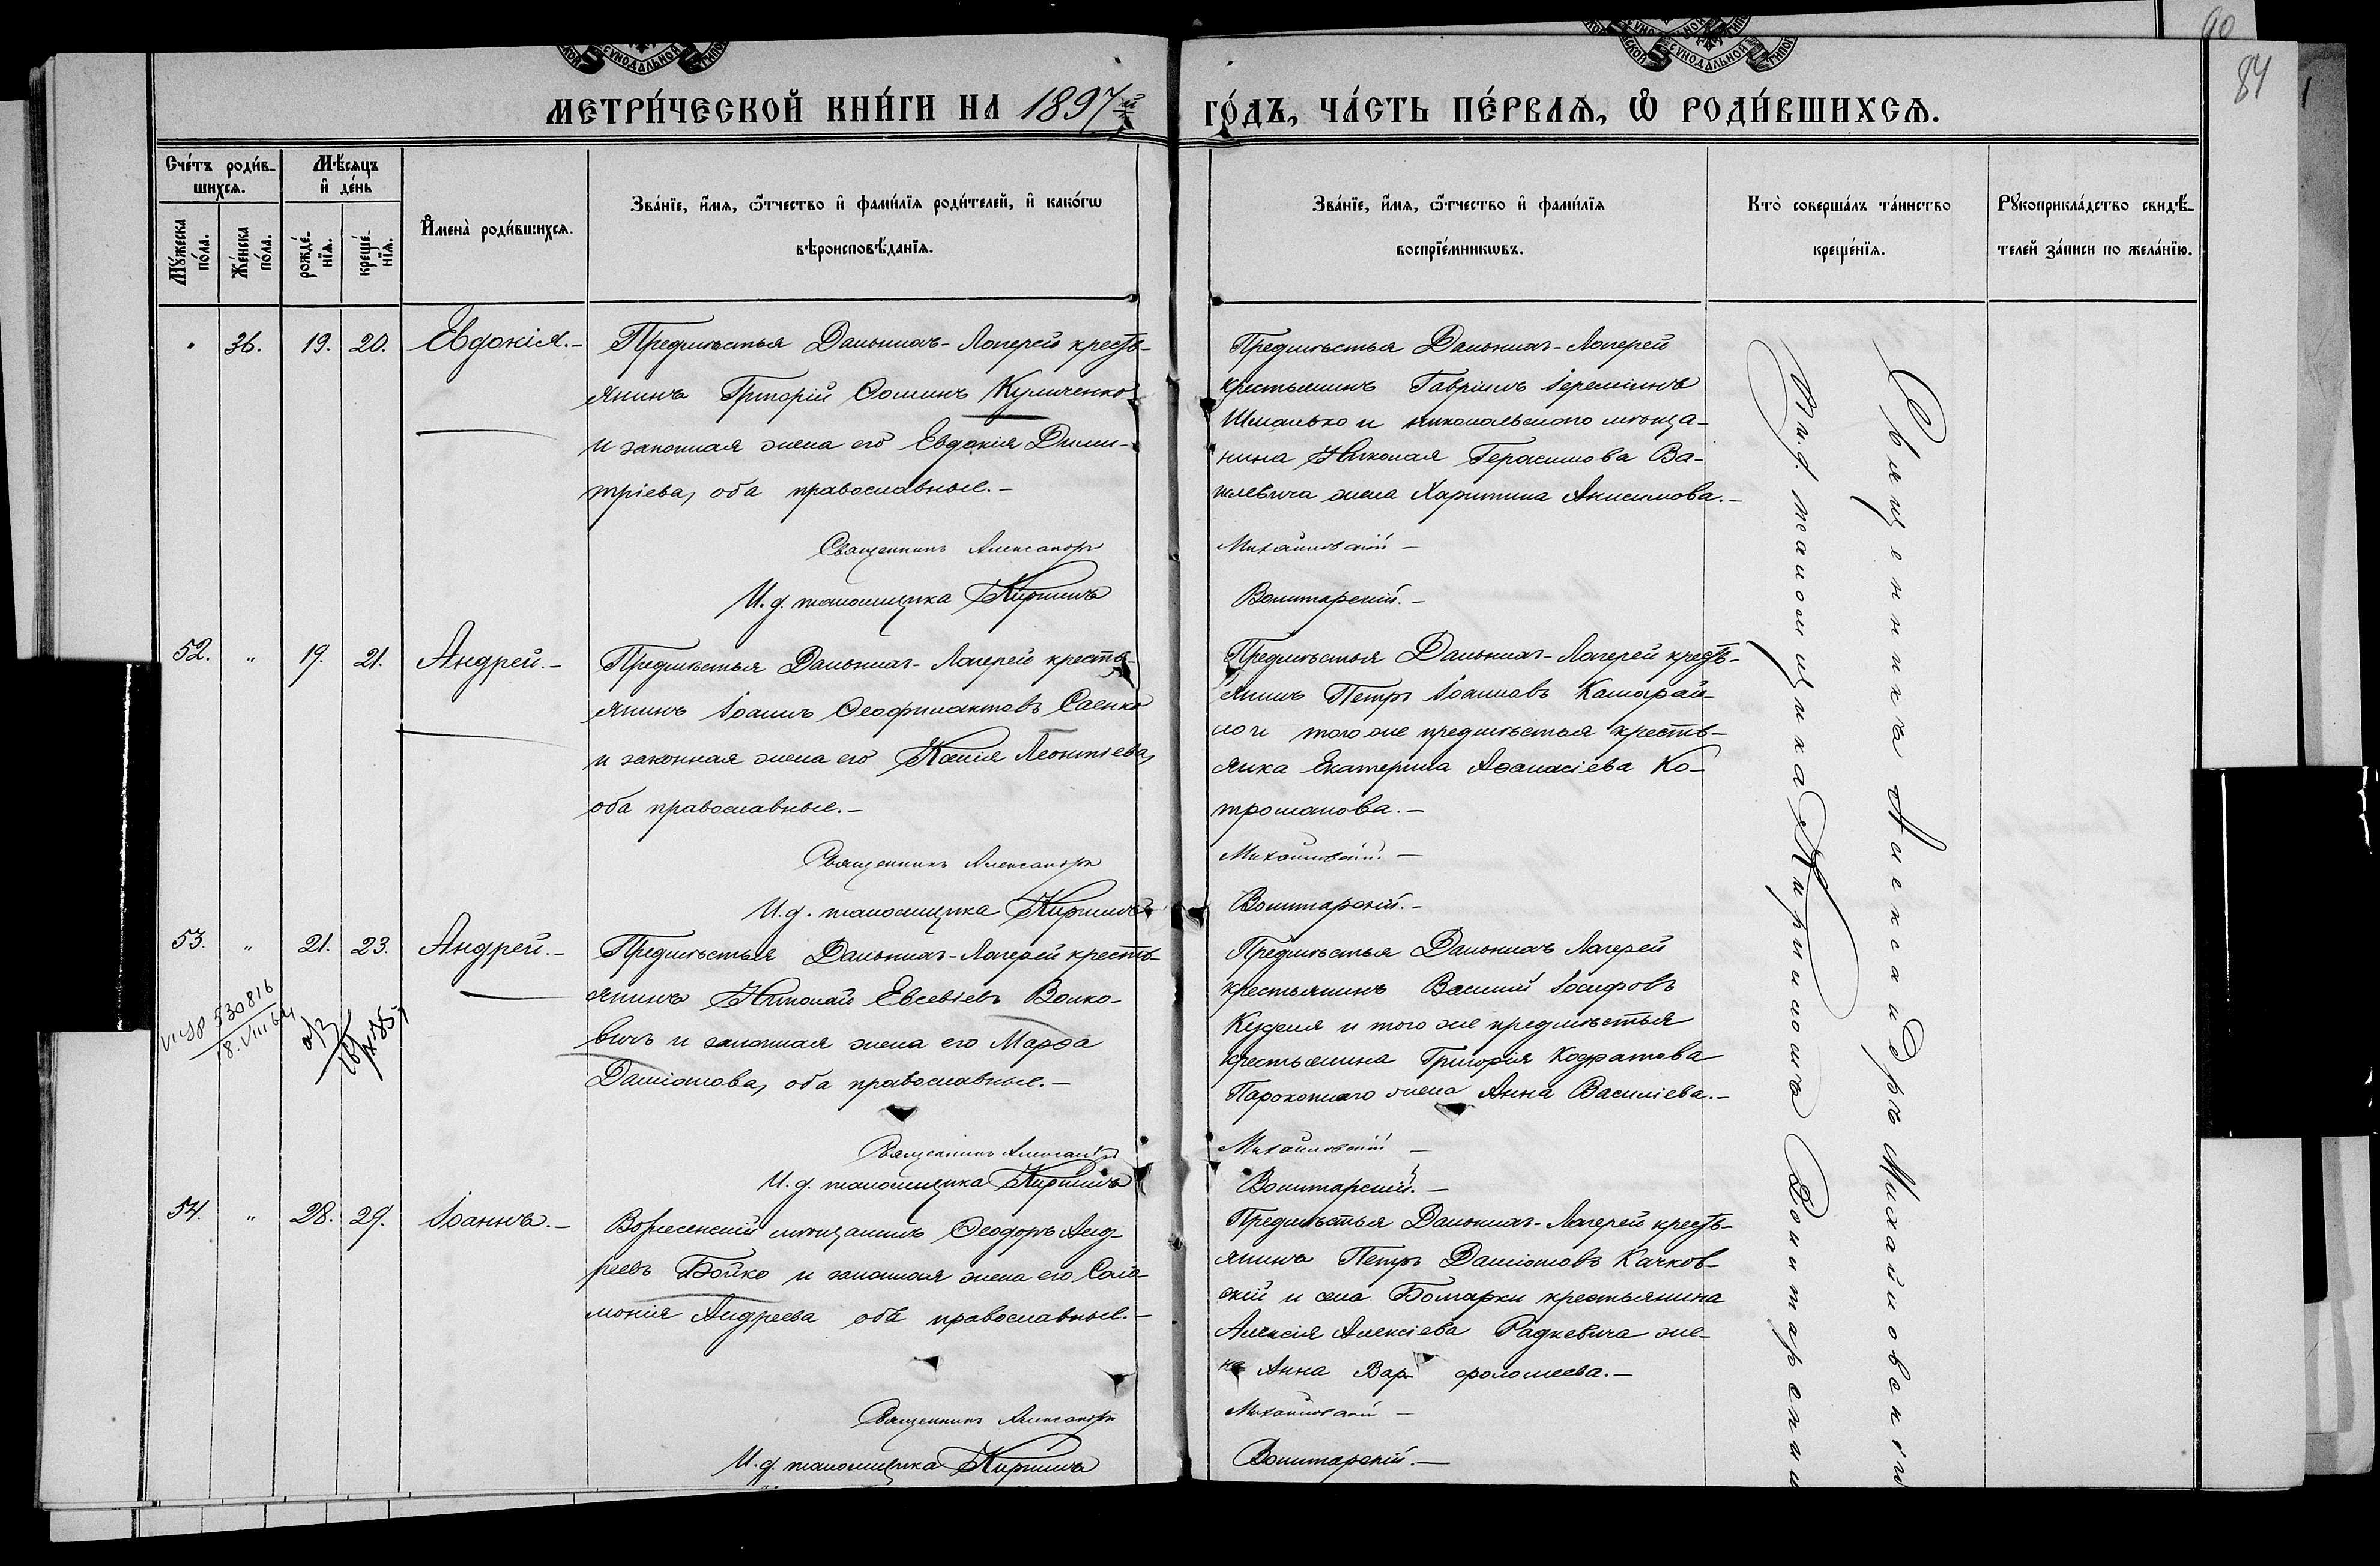 90
84
МЕТРИ́ЧЕСКОЙ КНИ́ГИ НА 1897й
ГО́ДЪ, ЧА́СТЬ ПЕ́РВАѦ, Ѡ РОДИ́ВШИХСѦ.
Сче́тъ роди́в-
шихсѧ.
Мѣ́сѧцъ
и де́нь
Му́жеска
по́ла.
Же́нска
по́ла.
рожде́-
нїѧ.
креще́-
нїѧ.
И҆мена̀ роди́вшихсѧ.
Зва́нїе, и҆́мѧ, ѻ҆́тчество и҆ фами́лїѧ роди́телей, и҆ како́гѡ
вѣроисповѣ́данїѧ.
Зва́нїе, и҆́мѧ, ѻ҆́тчество и҆ фами́лїѧ
воспрїе́мникѡвъ.
Кто̀ соверша́лъ та́инство
креще́нїѧ.
Рꙋкоприкла́дство свидѣ́-
телей за́писи по жела́нїю.
36. 19. 20. Евдокія.-
Предмѣстья Дальнихъ-Лагерей кресть-
янинъ Григорій Ѳоминъ Куличенко
и законная жена его Евдокія Дими-
тріева, оба православные.-
Священникъ Александръ
И. д. псаломщика Кириллъ
Предмѣстья Дальнихъ-Лагерей
крестьянинъ Гавріилъ Іереміинъ
Шманько и никопольского мѣща-
нина Николая Герасимова Ва-
жена Харитина Анисимова.-
Михайловскій-
Вонитарскій.-
52. " 19. 21. Андрей.-
Предмѣстья Дальнихъ-Лагерей кресть-
янинъ Іоаннъ Ѳеофилактовъ Саенко
и законная жена его Ксенія Леонтіева,
оба православные.-
Священникъ Александръ
И. д. псаломщика Кириллъ
Предмѣстья Дальнихъ-Лагерей кресть-
янинъ Петръ Іоанновъ
и того же предмѣстья кресть-
янка Екатерина Аѳанасіева Ко-
троманова.-
Михайловскій.-
Вонитарскій.-
53. " 21. 23. Андрей.-
530816
18.VIII 64
Предмѣстья Дальнихъ-Лагерей кресть-
янинъ Николай Евсевіевъ Волко-
вичъ и законная жена его Марѳа
Даміанова, оба православные.-
Священникъ Александръ
И. д. псаломщика Кириллъ
Предмѣстья Дальнихъ Лагерей
крестьянинъ Василій Іосифовъ
и того же предмѣстья
крестьянина Григорія Кодратова
Парокопнаго жена Анна Василіева.-
Михайловскій-
Вонитарскій.-
54. " 28. 29. Іоаннъ.-
Вознесенскій мѣщанинъ Ѳеодоръ Анд-
реевъ Бойко и законная жена его Соло-
монія Андреева оба православные.-
Священникъ Александръ
И. д. псаломщика Кириллъ
Предмѣстья Дальнихъ-Лагерей кресть-
янинъ Петръ Даміановъ Качков-
скій и села Болгарки крестьянина
Алексія Алексіева Радкевича же-
на Анна Вар- фоломеева.-
Михайловскій-
Вонитарскій.-
Священникъ Александръ Михайловскій
И. д. псаломщика Кириллъ Вонитарскій